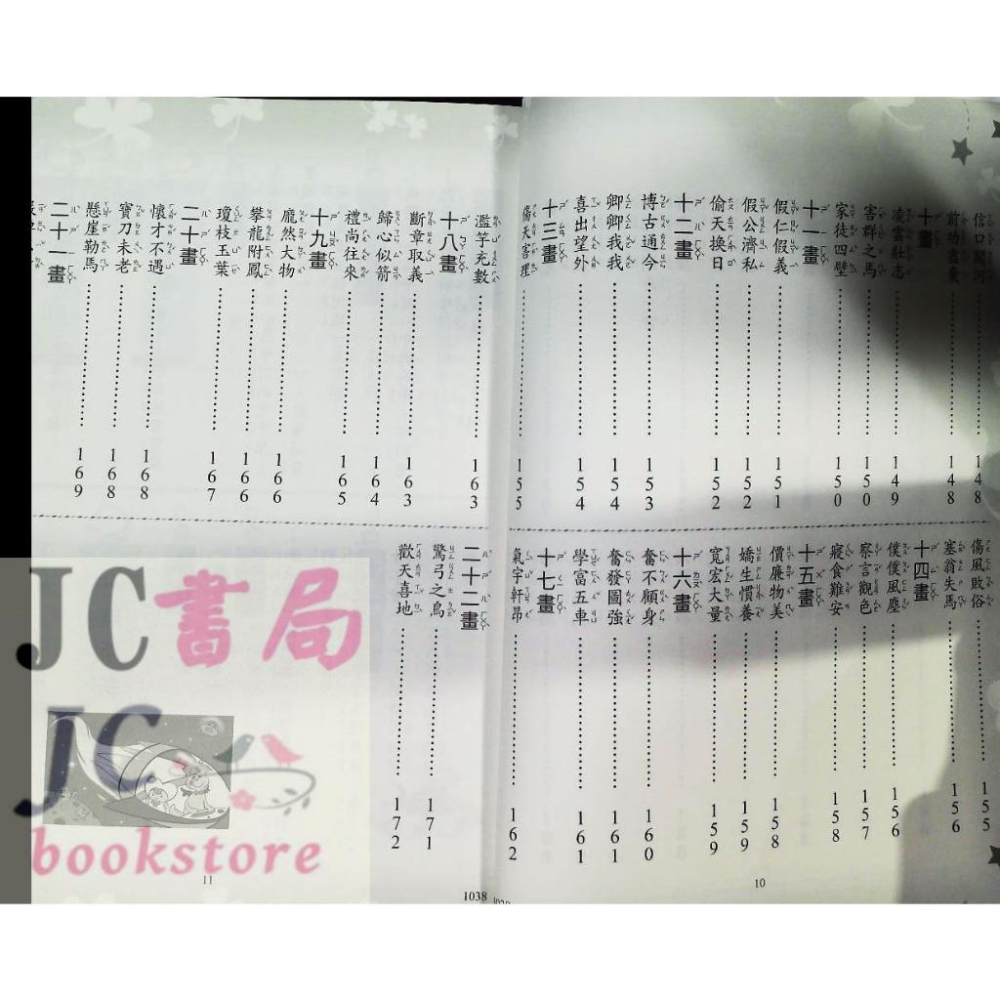 信口開河……148
前功盡棄……148
十畫
凌雲壯志……149
害群之馬……150
家徒四壁……150
十一畫
假仁假義……151
假公濟私……152
偷天換日……152
十二畫
博古通今……153
卿卿我我……154
喜出望外……154
十三畫
傷天害理……155
傷風敗俗……155
塞翁失馬……156
十四畫
僕僕風塵……156
察言觀色……157
寢食難安……158
十五畫
價廉物美……158
嬌生慣養……159
寬宏大量……159
十六畫
奮不顧身……160
奮發圖強……161
學富五車……161
十七畫
氣宇軒昂……162
10
濫竽充數……163
十八畫
斷章取義……163
歸心似箭……164
禮尚往來……165
十九畫
龐然大物……166
攀龍附鳳……166
瓊枝玉葉……167
二十畫
懷才不遇……168
寶刀未老……168
懸崖勒馬……169
二十一畫
二十二畫
驚弓之鳥……171
歡天喜地……172
11
1038
JC書局
JC
bookstore